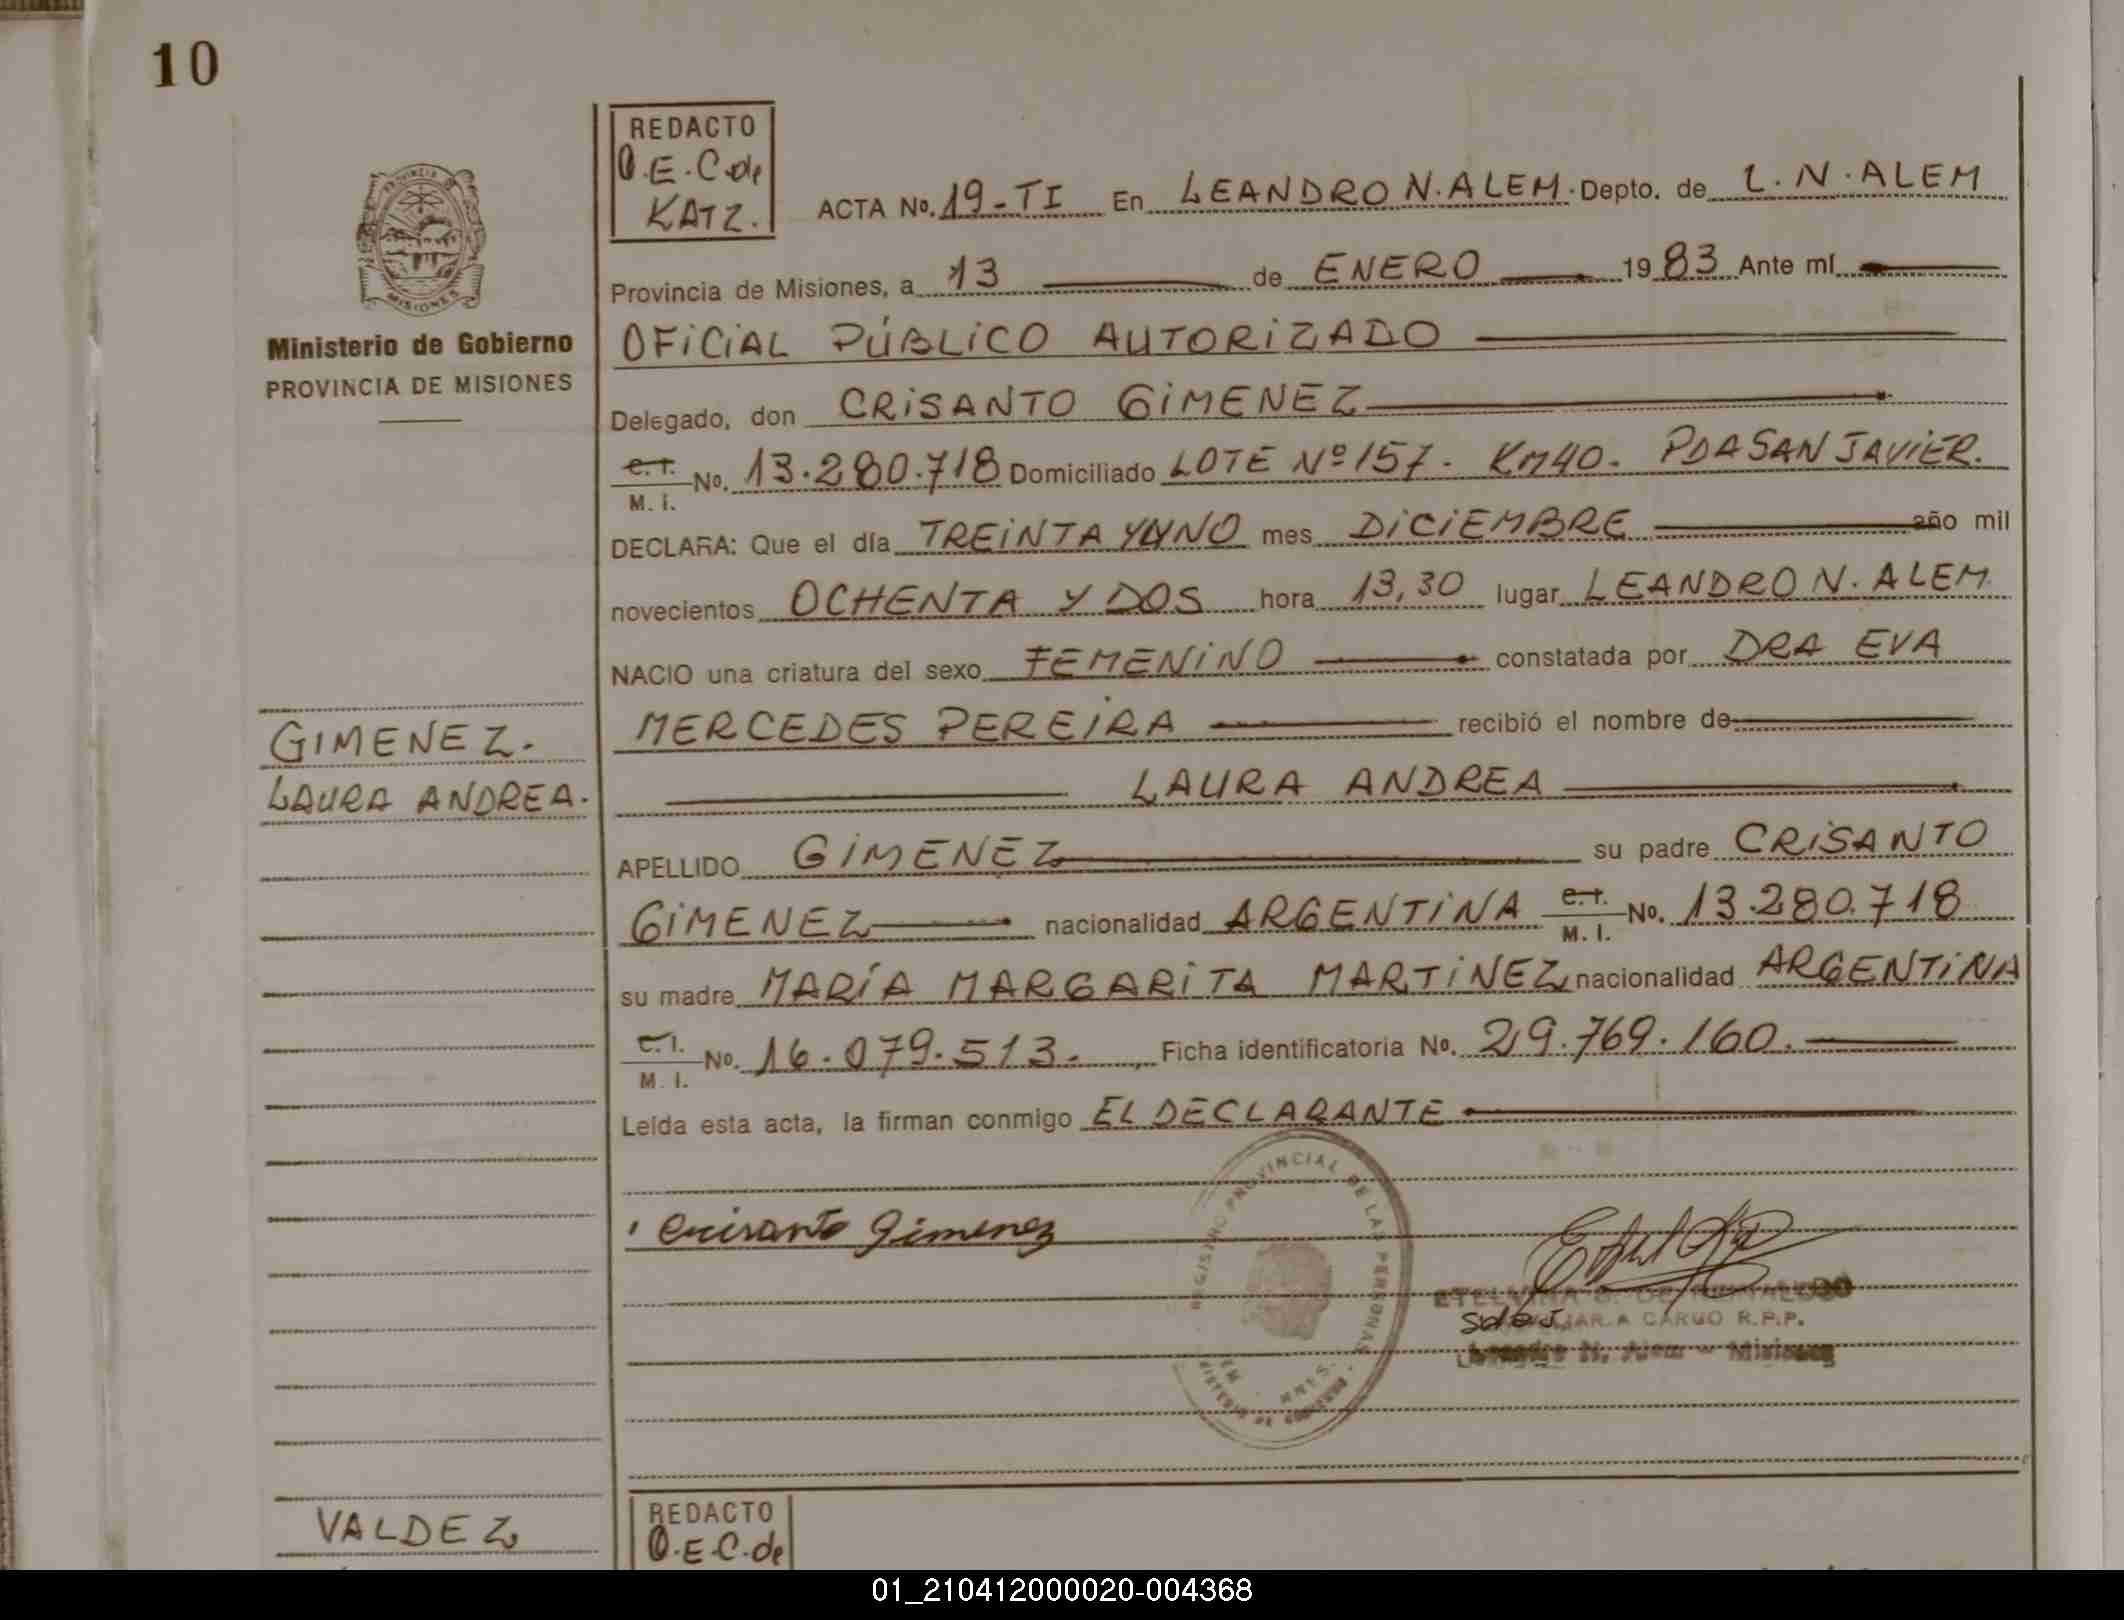 10
REDACTO
O.E.C. de
KATZ.
ACTA No. 19-TI En LEANDRO N. ALEM. Depto. de L.N. ALEM
Provincia de Misiones, a 13 de ENERO 1983 Ante mí
OFICIAL PÚBLICO AUTORIZADO
Delegado, don CRISANTO GIMENEZ
C.I. No. 13.280.718 Domiciliado LOTE Nº 157. KM40. PDA SAN JAVIER.
M. I.
DECLARA: Que el día TREINTA Y UNO mes DICIEMBRE año mil
novecientos OCHENTA Y DOS hora 13,30 lugar LEANDRO N. ALEM.
NACIO una criatura del sexo FEMENINO constatada por DRA EVA
MERCEDES PEREIRA recibió el nombre de
LAURA ANDREA
APELLIDO GIMENEZ su padre CRISANTO
GIMENEZ nacionalidad ARGENTINA C.I. No. 13.280.718
M. I.
su madre MARÍA MARGARITA MARTINEZ nacionalidad ARGENTINA
C.I. No. 16.079.513. Ficha identificatoria No. 29.769.160.
M. I.
Leída esta acta, la firman conmigo EL DECLARANTE
Crisanto Gimenez
REGISTRO PROVINCIAL DE LAS PERSONAS
MNES.
A CARGO R.P.P.
Leandro N. Alem - Misiones
PROVINCIA
MISIONES
Ministerio de Gobierno
PROVINCIA DE MISIONES
GIMENEZ.
LAURA ANDREA.
VALDEZ
REDACTO
O.E.C. de
01_210412000020-004368